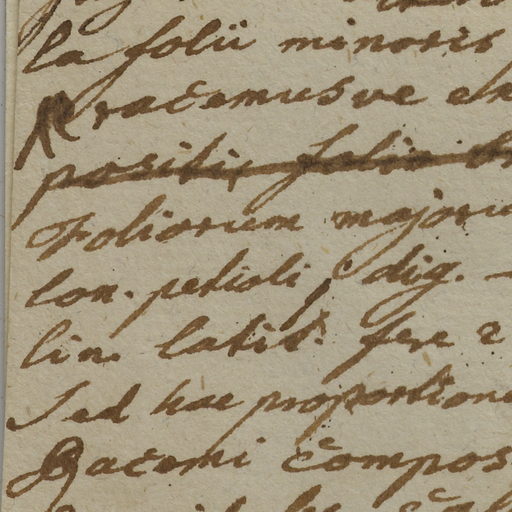 la folii minoris
Racemusve ex
positis folia
Foliorum majoru
lon. petioli dig. —
lin. latit. fere 2
Sed hae proportion
Racemi compos